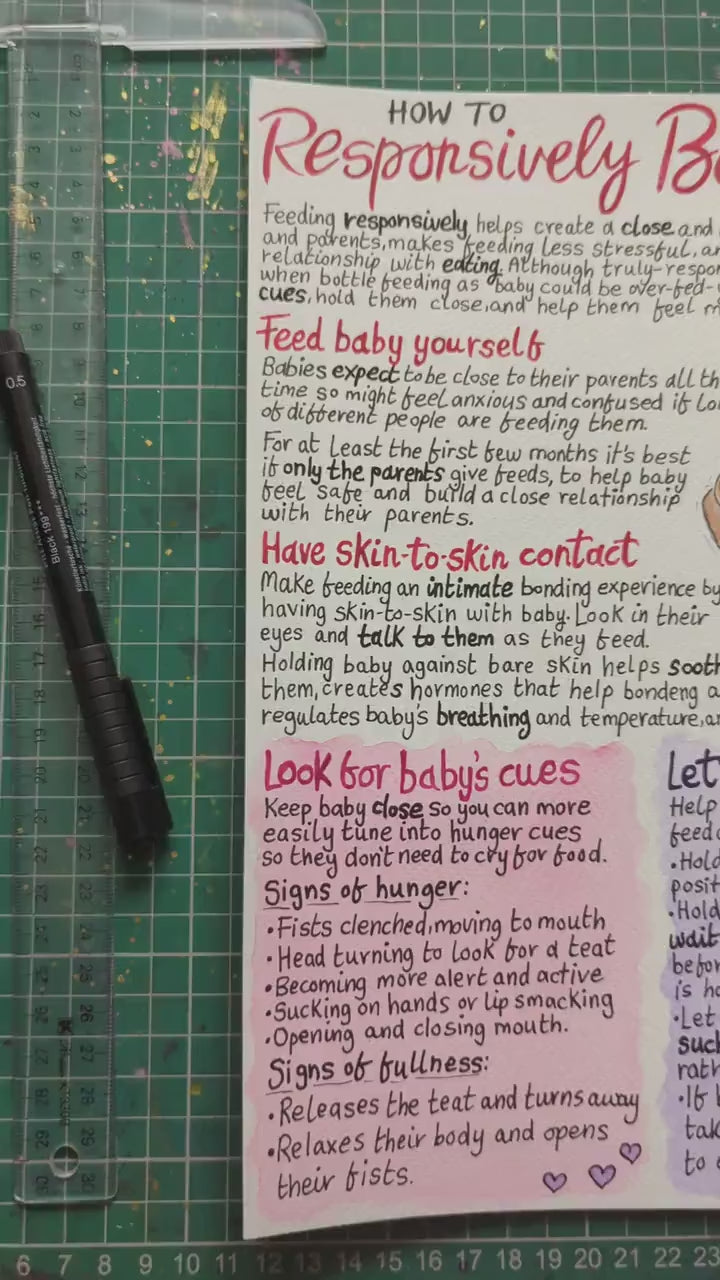 HOW TO
Responsively B
Feeding responsively helps create a close and
and parents, makes feeding less stressful, an
relationship with eating. Although truly-respon
when bottle feeding as baby could be over-fed-
cues, hold them close, and help them feel m
Feed baby yourself
Babies expect to be close to their parents all th
time so might feel anxious and confused if lo
of different people are feeding them.
For at least the first few months it's best
if only the parents give feeds, to help baby
feel safe and build a close relationship
with their parents.
Have skin-to-skin contact
Make feeding an intimate bonding experience by
having skin-to-skin with baby. Look in their
eyes and talk to them as they feed.
Holding baby against bare skin helps sooth
them, creates hormones that help bondeng a
regulates baby's breathing and temperature, an
Look for baby's cues
Keep baby close so you can more
easily tune into hunger cues
so they don't need to cry for food.
Signs of hunger:
•Fists clenched, moving to mouth
•Head turning to look for a teat
•Becoming more alert and active
•Sucking on hands or lip smacking
•Opening and closing mouth.
Signs of fullness:
•Releases the teat and turns away
•Relaxes their body and opens
their fists.
Let
Help
feed
•Hold
posit
•Hold
wait
befor
is ho
•Let
such
rath
•If b
tak
to
0.5
Black 199
6 7 8 9 10 11 12 13 14 15 16 17 18 19 20 21 22 23